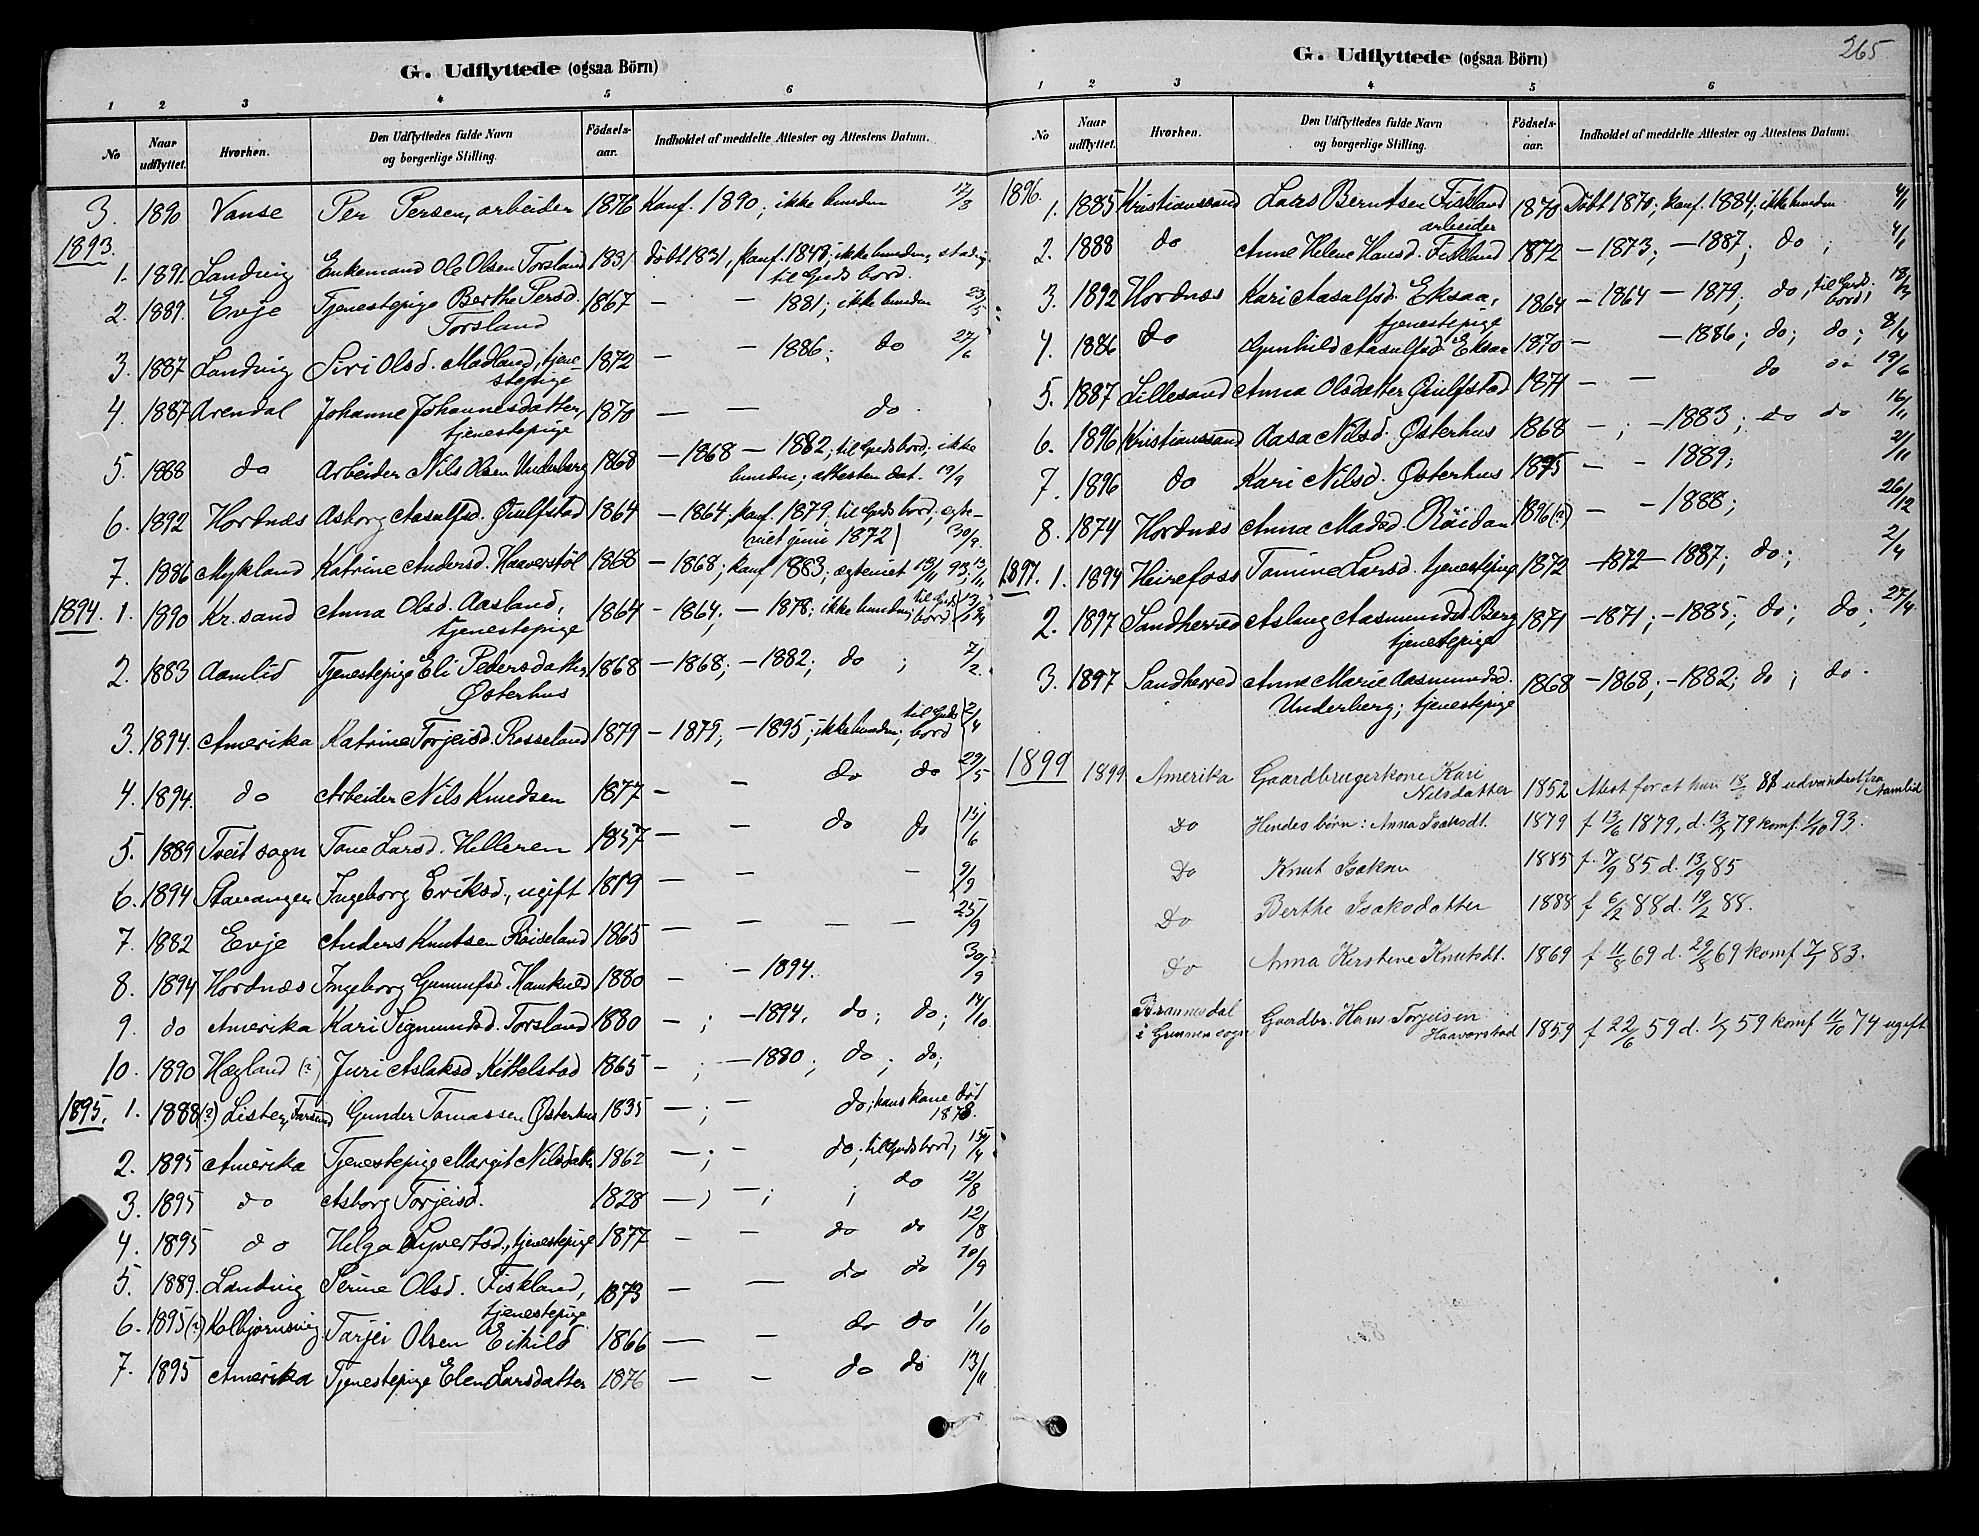 G. Udflyttede (ogsaa Börn)
1 2 3 4 5 6
No
Naar udflyttet.
Hvorhen.
Den Udflyttedes fulde Navn og borgerlige Stilling.
Födsels-aar.
Indholdet af meddelte Attester og Attestens Datum.
3. 1890 Vanse Per Persen, arbeider 1876 Kanf. 1890; ikke bunden 17/3
1893.
1. 1891 Landvig Enkemand Ole Olsen Torsland 1831 Döbt 1831, kanf. 1848; ikke bunden; stadig
til Guds bord.
2. 1889. Evje Tjenestepige Berthe Persd. 1867 — — 1881; ikke bunden 23/5
Torsland
3. 1887 Landvig Siri Olsd. Madland, tjene- 1872 — — 1886; do 27/6
stepige
4. 1887 Arendal Johanne Johannesdatter, 1870 — — do.
tjenestepige
5. 1888 do Arbeider Nils Olsen Underberg 1868 — 1868 — 1882; til Guds bord; ikke
bunden; attesten dat. 19/9
6. 1892 Hordnæs Asborg Aasulfsd. Öiulfstad 1864 — 1864; kanf. 1879; til Guds bord; egte-
1872) 30/9.
7. 1886 Mykland Katrine Andersd. Haaverstøl 1868 — 1868; kanf 1883; egteviet 13/11 93; 13/11
1894. 1. 1890 Kr.sand Anna Olsd. Aasland, 1864 — 1864; — 1878; ikke bunden; til Guds bord
tjenestepige
2. 1883 Aamlid Tjenestepige Eli Pedersdatter, 1868 — 1868; — 1882; do ; 7/2.
Østerhus
3. 1894. Amerika Katrine Torjeisd. Rosseland 1879 — 1879; — 1895; ikke bunden; til Guds bord 2/4
4. 1894. do Arbeider Nils Knudsen 1877 — — do do 29/5
5. 1889 Tveit sogn Tone Larsd. Helleren 1857 — — do do 15/6
6. 1894 Stavanger Ingeborg Eriksd., ugift 1879 — — — 9/9
7. 1882 Evje Anders Knutsen Röiseland 1865 — — — — 25/9
8. 1894 Hordnæs Ingeborg Gunnufsd. Hamkned 1880 — — 1894. 30/9
9. do Amerika Kari Sigmundsd. Torsland 1880 — ; — 1894. do; do; 14/10
10. 1890 Hægland (?) Juri Aslaksd Kittelstad 1865 — ; — 1880; do; do;
1895. 1. 1888(?) Lister, Farsund Gunder Tomassen Østerhus 1835 — ; — do; hans kone död
1878.
2. 1895 Amerika Tjenestepige Margit Nilsdatter 1862 — ; — do; til Guds bord; 15/4
3. 1895 do Asborg Torjeisd. 1828 — ; — ; ; do 12/8
4. 1895 do Helga Syvertsd., tjenestepige 1877 — — do do 12/8
5. 1889. Landvig Serine Olsd. Fiskland, 1873 — — do do 10/9
tjenestepige
6. 1895(?) Kolbjørnsvig Tarjei Olsen Eikild 1866 — — do do 1/10
7. 1895 Amerika Tjenestepige Elen Larsdatter 1876 — — do do 13/11
265
G. Udflyttede (ogsaa Börn)
1 2 3 4 5 6
No
Naar udflyttet.
Hvorhen.
Den Udflyttedes fulde Navn og borgerlige Stilling.
Födsels-aar.
Indholdet af meddelte Attester og Attestens Datum.
1896. 1. 1885 Kristianssand Lars Berntsen Fiskland 1870 Döbt 1870; kanf. 1884; ikke bunden 4/1
arbeider
2. 1888 do Anne Helene Hansd. Fiskland 1872 — 1873; — 1887; do ; 4/1
3. 1892 Hordnæs Kari Aasulfsd. Eksaa, 1864 — 1864 — 1879; do, til Guds bord; 18/3
tjenestepige
4. 1886 do Gunhild Aasulfsd Eksaa 1870 — — 1886; do; do; 8/4
5. 1887 Lillesand Anna Olsdatter Öiulfstad 1871 — — do do 19/6
6. 1896 Kristianssand Aasa Nilsd. Østerhus 1868 — ; — 1883; do do 16/11
7. 1896 do Kari Nilsd. Østerhus 1875 — — 1889; 21/11
8. 1874 Hordnæs Anna Madsd. Röidan 1896(?) — — 1888; 26/12
1897. 1. 1894 Heirefoss Tomine Larsd. tjenestepige 1872 — 1872 — 1887; do; 2/4
2. 1897 Sandherred Aslaug Aasmundsd Berg 1871 — 1871; — 1885; do; do; 27/4
tjenestepige
3. 1897 Sandherred Anne Marie Aasmundsd. 1868 — 1868; — 1882; do; do.
Underberg; tjenestepige
1899 1899 Amerika Gaardbrugerkone Kari
Nilsdatter 1852 Attest for at hun 88 udvandret fra Aamlid
Do Hendes börn: Anna Isaksdt. 1879 f 13/6 1879, d. 13/7 79 komf. 1/10 93.
Do Knut Isaksen 1885 f. 7/9 85 d. 13/9 85
Do Berthe Isaksdatter 1888 f 6/2 88 d. 19/2 88.
Do Anna Kirstene Knutsdt. 1869 f 11/8 69 d. 29/8 69 komf 7/1 83.
i Grimmen sogn Gaardbr. Hans Torjeisen
Haaverstad 1859 f 22/6 59 d. 1/7 59 komf 11/10 74 ugift